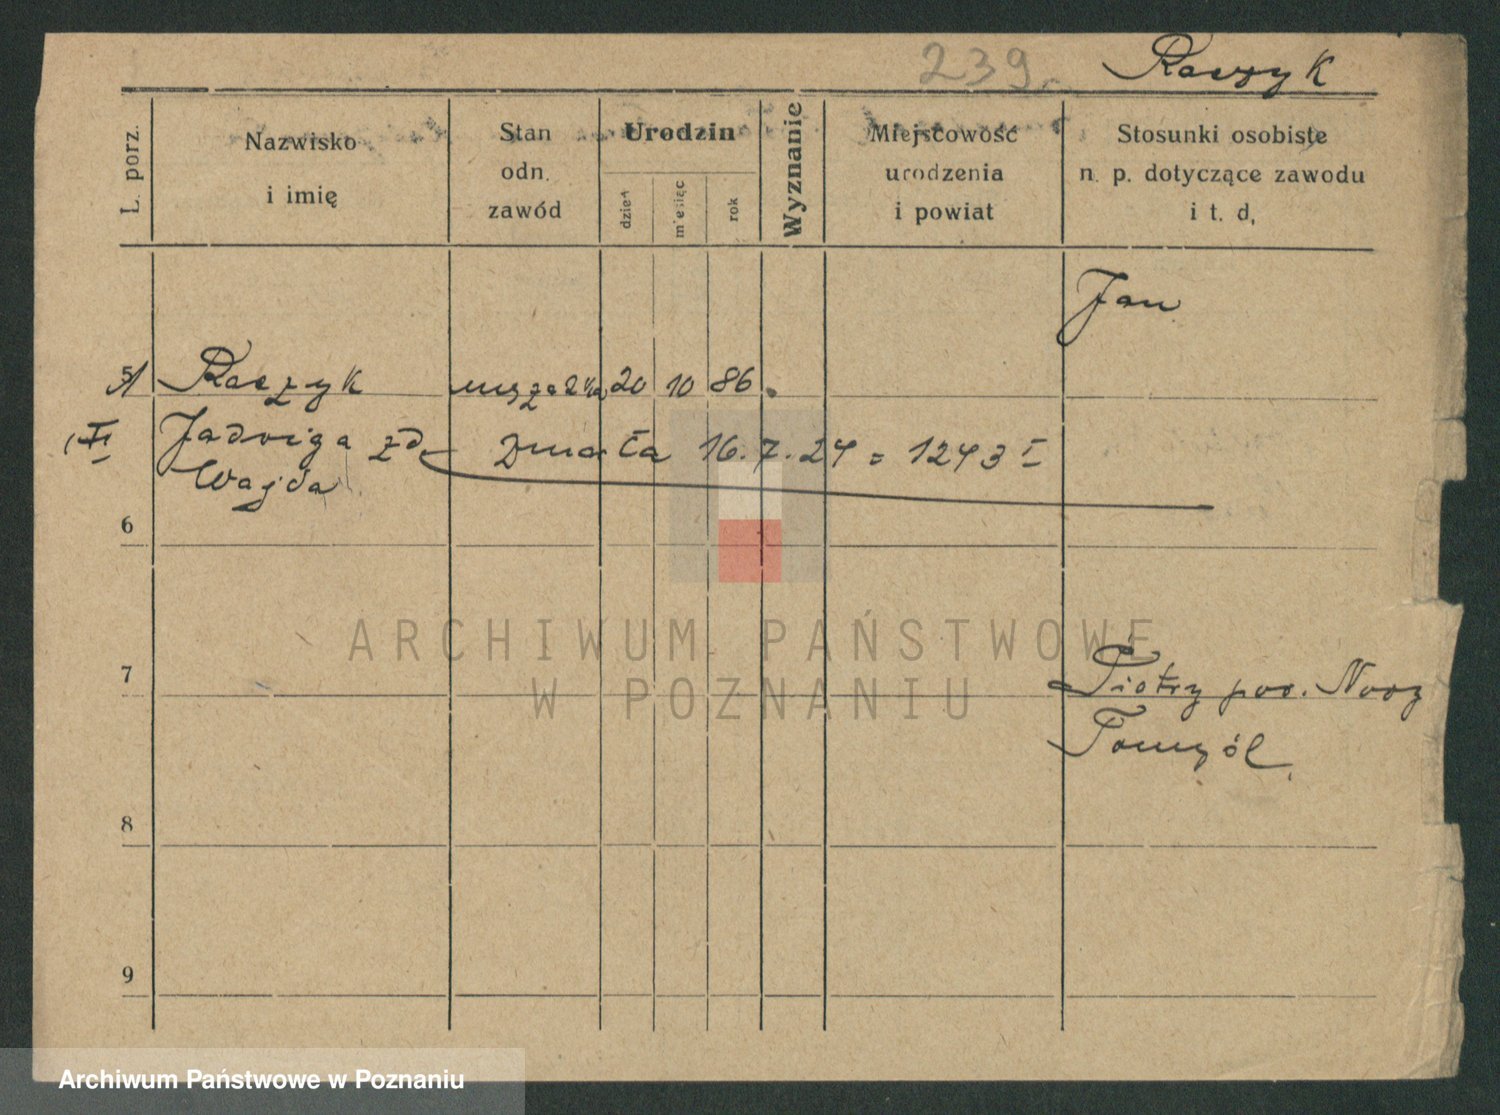 239.
Raczyk
L. porz.
Nazwisko
i imię
Stan
odn.
zawód
Urodzin
dzień
miesiąc
rok
Wyznanie
Miejscowość
urodzenia
i powiat
Stosunki osobiste
n. p. dotyczące zawodu
i t. d,
Jan
5 Raczyk 20 10 86
Jadwiga zd. Zmarła 16.7.24 = 1243 I
Wajda
6
ARCHIWUM PAŃSTWOWE
W POZNANIU
7 Piotry pow. Nowy
Tomyśl
8
9
Archiwum Państwowe w Poznaniu